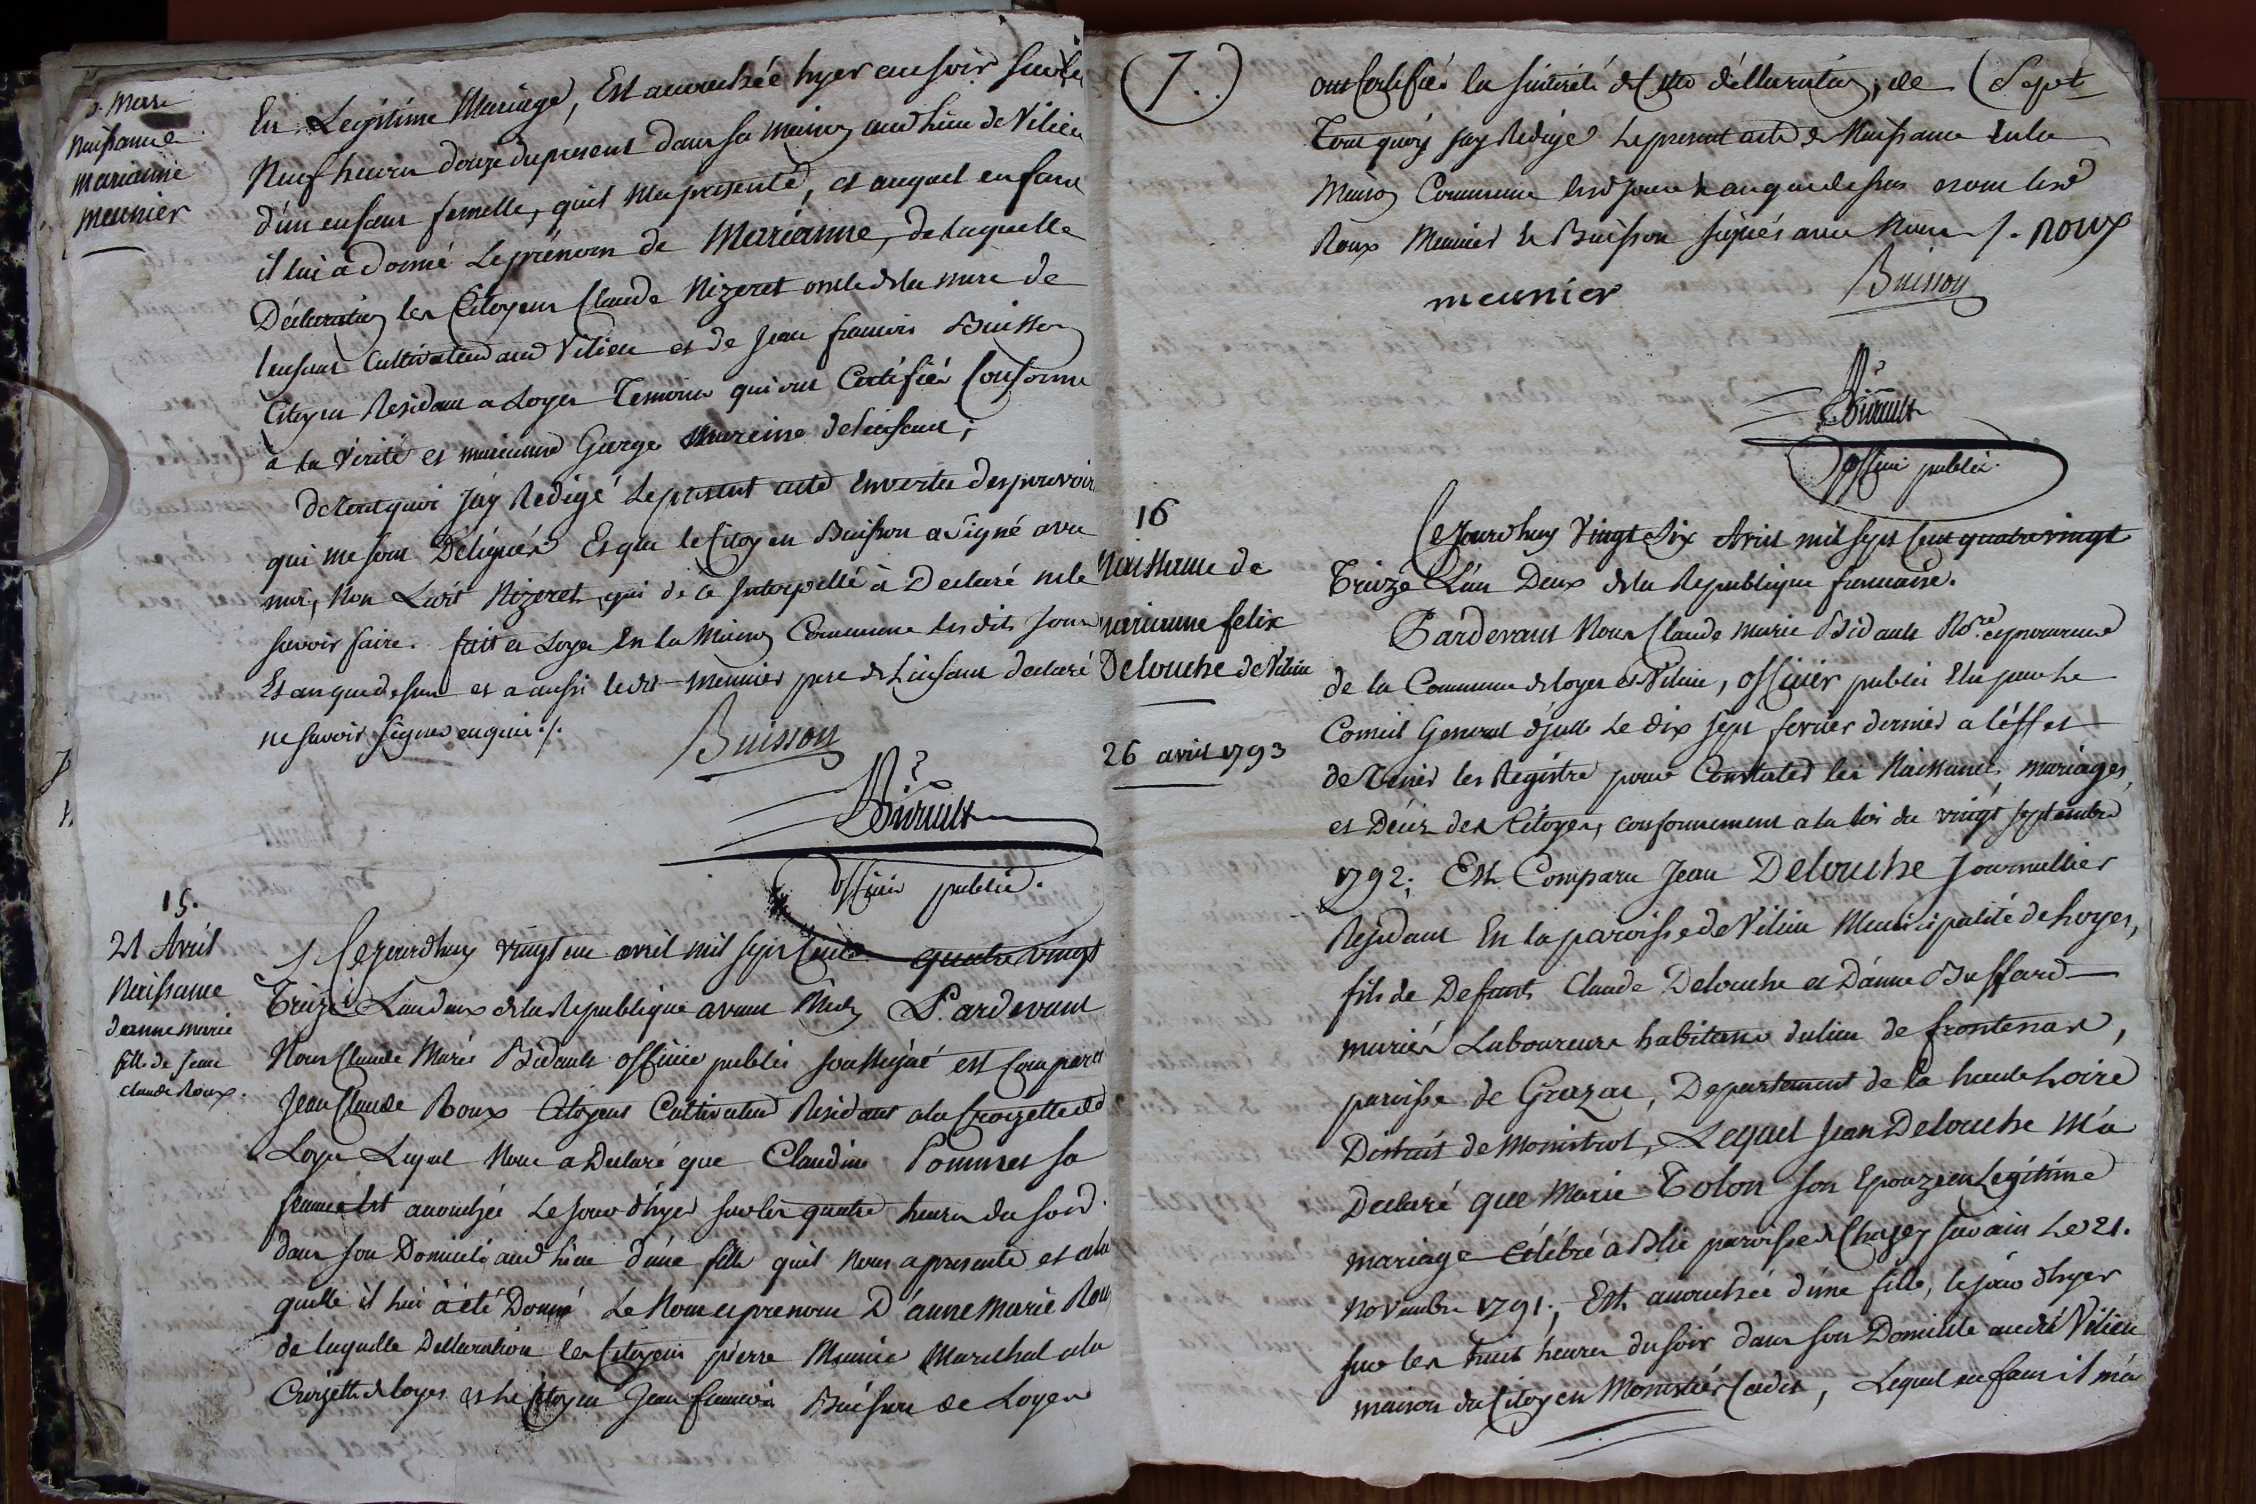 Naissance
marianne
meunier
En Legitime Mariage, Est accouchée hyer au soir sur les
Neuf heures douze du present dans sa maison audit lieu de Vilieu
d'un enfant femelle, qu'il m'a presenté, et auquel enfant
il lui a donné Le prénom de Marianne, de laquelle
Déclaration les Citoyens Claude Nizeret oncle de la mere de
lenfant Cultivateur aud Vilieu et de Jean francois Buisson
Citoyen Residant a Loyes Temoins qui ont Certifiés Conforme
à la Vérité et marianne George mareine de lenfant;
de tout quoi J'ay Redigé Le present acte En vertu des pouvoirs
qui me sont Délégués Et que le Citoyen Buisson a signé avec
moi, Non Ledit Nizeret qui de ce Interpellé à Declaré ne le
savoir faire. fait a Loyes En la Maison Commune Lesdits Jour
Et an que dessus et a aussi ledit meunier pere de L'enfant declaré
ne savoir signer enquis ./.
Buisson
Bidault
officier public.
15.
21 Avril
Naissance
d'anne marie
fille de Jean
Claude Roux.
Cejourdhuy vingt un avril mil sept Cents quatre vingt
Treize L'an deux de la Republique avant Midy Pardevant
Nous Claude Marie Bidault officier public soussigné est Comparu
Jean Claude Roux Citoyens Cultivateur Résidant a la Croizette de
Loyes Lequel Nous a Declaré que Claudine Pommet sa
femme est accouchée Le jour d'hyer sur les quatre heures du soir
dans son Domicile aud lieu d'une fille qu'il nous a presenté et a la
quelle il lui à été Donné Le Nom et prenom D'anne marie Roux
de laquelle Declaration les Citoyens pierre Meunier Marechal a la
Croizette de loyes et le Citoyen Jean francois Buisson de Loyes
(7.)
ont Certifiés la sincérité de Cette déclaration, de (Sept
Tout quoy jay Redigé Le present acte de Naissance En la
Maison Commune lesd jour & an que dessus et ont lesd
Roux Meunier & Buisson signés avec Nous J. Roux
meunier
Buisson
Bidault
officier public.
16
Naissance de
marianne felix
Delouche de Vilieu
26 avril 1793
Cejourdhuy Vingt Six Avril mil sept Cent quatre vingt
Treize L'an Deux de la Republique francaise.
Pardevant Nous Claude Marie Bidault No.re et procureur
de la Commune de loyes et Vilieu, officier public Elu par le
Conseil General d'jcelle Le dix sept fevrier dernier a l'éffet
de Tenir les Régistre pour Constater les Naissances, mariages,
et Décés des Citoyens, conformement a la loi du vingt septembre
1792; Est Comparu Jean Delouche Journallier
Résidant En la paroisse de Vilieu Municipalité de Loyes,
fils de Defunts Claude Delouche et D'anne Buffard
mariés Laboureurs habitans du lieu de frontenar,
paroisse de Grazac, Departement de la haute Loire
District de Monistrol, Lequel Jean Delouche M'a
Declaré que Marie Tolon son Epouze en Legitime
mariage célébré à Blie paroisse de Chazey sur ain Le 21.
Novembre 1791; Est accouchée d'une fille, le jour d'hyer
sur les huit heures du soir dans son Domicile audit Vilieu
maison du Citoyen Monestier Cadet, Lequel enfant il m'a